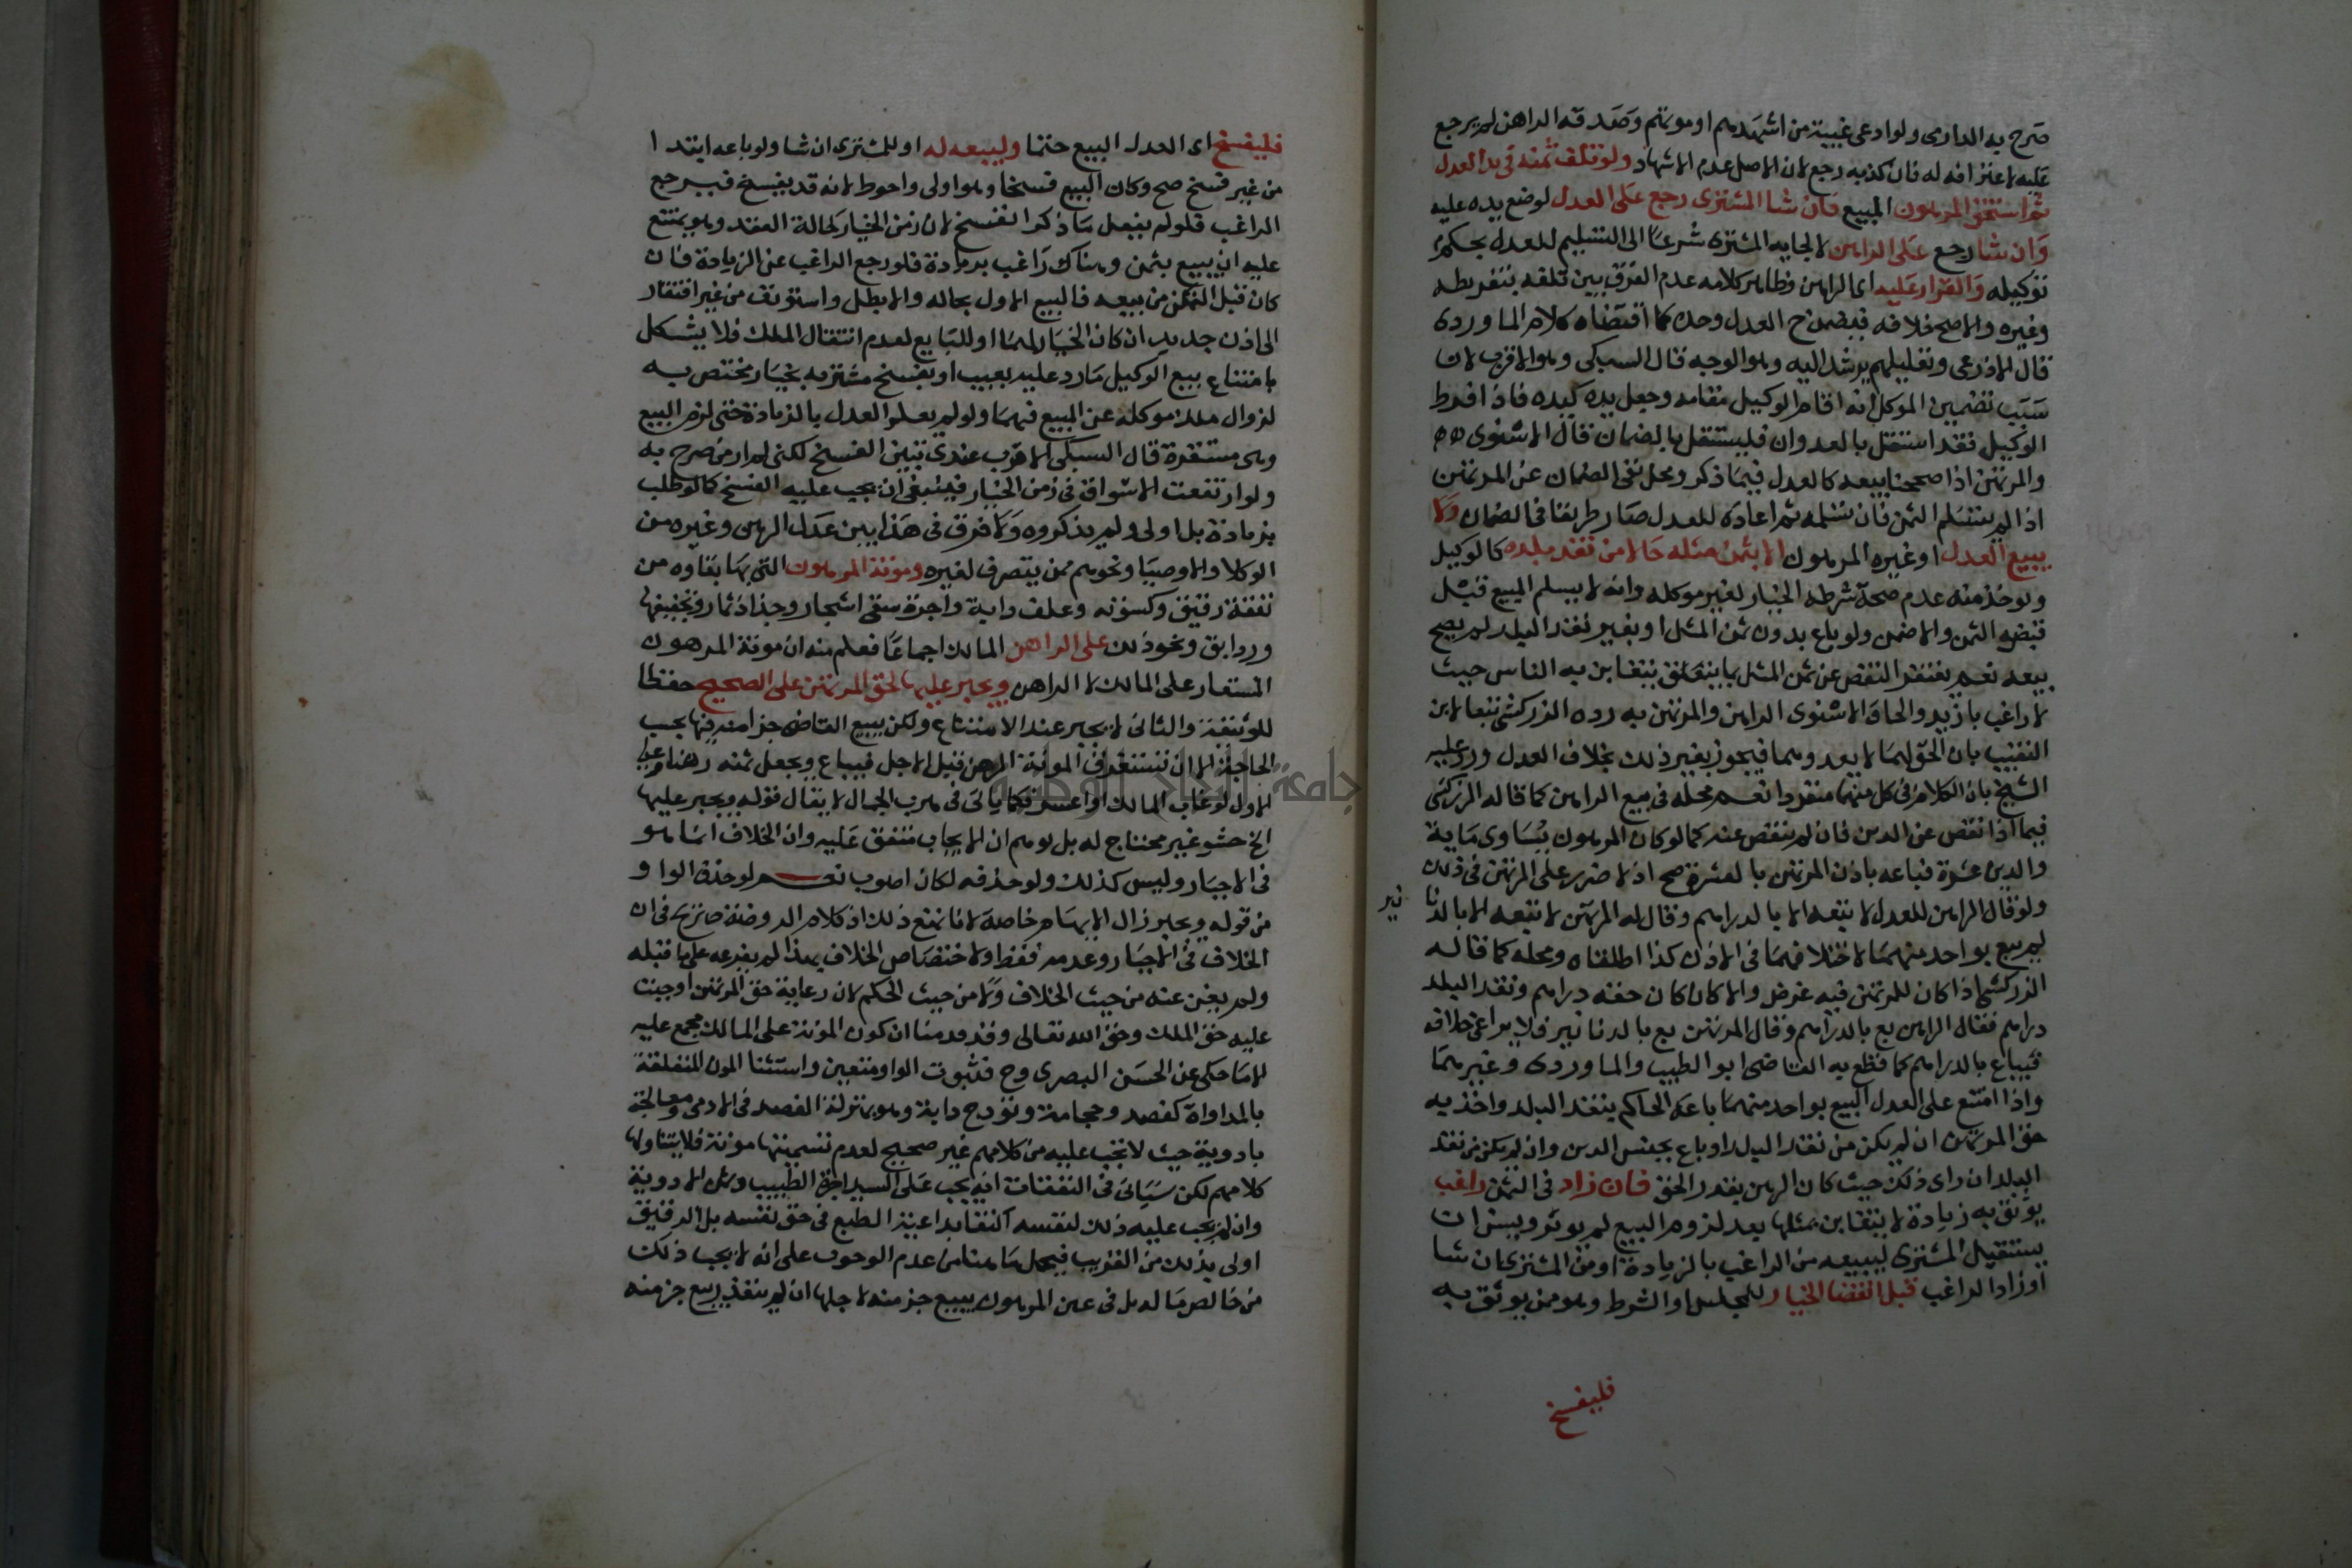 صرح به الدارمى ولو ادعى غيبية من اشهدهم او موتهم وصدقه الراهن لم يرجع
عليه لاعترافه له فان كذبه رجع لان الاصل عدم الاشهاد ولو تلف ثمنه فى يد العدل
ثم استحق المرهون المبيع فان شا المشترى رجع على العدل لوضع يده عليه
وان شا رجع على الراهن لالجايه المشترى شرعا الى التسليم للعدل بحكم
توكيله والقرار عليه اى الراهن وظاهر كلامه عدم الفرق بين تلفه بتفريطه
وغيره والاصح خلافه فيضمن ح العدل وحده كما اقتضاه كلام الماوردى
قال الاذرعى وتعليلهم يرشد اليه وهو الوجه قال السبكى وهو الاقرب لان
سبب تضمين الموكل انه اقام الوكيل مقامه وجعل يده كيده فاذا فرط
الوكيل فقد استقل بالعدوان فليستقل بالضمان قال الاسنوى
والمرتهن اذا صححنا بيعه كالعدل فيما ذكر ومحل نفى الضمان عن المرتهن
اذا لم يتسلم الثمن فان تسلمه ثم اعاده للعدل صار طريقا فى الضمان ولا
يبيع العدل او غيره المرهون الا بثمن مثله حالا من نقد بلده كالوكيل
ويوخذ منه عدم صحة شرطه الخيار لغير موكله وانه لا يسلم المبيع قبل
قبض الثمن والا ضمن ولو باع بدون ثمن المثل او بغير نقد البلد لم يصح
بيعه نعم يغتفر النقص عن ثمن المثل بما يتغابن به الناس حيث
لا راغب بازيد والحاق الاسنوى الراهن والمرتهن به رده الزركشى تبعا لابن
النقيب بان الحق لهما لا يعدوهما فيجوز بغير ذلك بخلاف العدل ورد عليه
الشيخ بان الكلام فى كل منهما منفردا نعم محله فى بيع الراهن كما قاله الزركشى
فيما اذا نقص عن الدين فان لم ينقص عنه كما لو كان المرهون يساوى ماية
والدين عشرة فباعه باذن المرتهن بالعشرة صح اذ لا ضرر على المرتهن فى ذلك
ولو قال الراهن للعدل لا تبعه الا بالدراهم وقال له المرتهن لا تبعه الا بالدنا نير
لم يبع بواحد منهما لاختلافهما فى الاذن كذا اطلقناه ومحله كما قاله
الزركشى اذا كان للمرتهن فيه غرض والا كان كان حقه دراهم ونقد البلد
دراهم فقال الراهن بع بالدراهم وقال المرتهن بع بالدنانير فلا يراعى خلافه
فيباع بالدراهم كما قطع به القاضى ابو الطيب والماوردى وغيرهما
واذا امتنع على العدل البيع بواحد منهما باعه الحاكم بنقد البلد واخذ به
حق المرتهن ان لم يكن من نقد البلد او باع بجنس الدين وان لم يكن من نقد
البلد ان راى ذلك حيث كان الرهن بقدر الحق فان زاد فى الثمن راغب
يوثق به زيادة لا يتغابن بمثلها بعد لزوم البيع لم يوثر ويسن ان
يستقيل المشترى ليبيعه من الراغب بالزيادة او من المشترى ان شا
او زاد الراغب قبل انقضا الخيار للمجلس او الشرط وهو ممن يوثق به
فليفسخ
فليفسخ اى العدل البيع حتما وليبعه له او للمشترى ان شا ولو باعه ابتدا
من غير فسخ صح وكان البيع فسخا وهو اولى واحوط لانه قد يفسخ فيرجع
الراغب فلو لم يفعل ما ذكر انفسخ لان زمن الخيار كحالة العقد وهو يمتنع
عليه ان يبيع بثمن وهناك راغب بزيادة فلو رجع الراغب عن الزيادة فان
كان قبل التمكن من بيعه فالبيع الاول بحاله والا بطل واستونف من غير افتقار
الى اذن جديد ان كان الخيار لهما او للبايع لعدم انتقال الملك فلا يشكل
بامتناع بيع الوكيل ما رد عليه بعيب او بفسخ مشتريه بخيار مختص به
لزوال ملك موكله عن المبيع فيهما ولو لم يعلم العدل بالزيادة حتى لزم البيع
وهى مستقرة قال السبكى الاقرب عندى تبين الفسخ لكنى لم ار من صرح به
ولو ارتفعت الاسواق فى زمن الخيار فينبغى ان يجب عليه الفسخ كما لو طلب
بزيادة بل اولى ولم يذكروه ولا فرق فى هذا بين عدل الرهن وغيره من
الوكلا والاوصيا ونحوهم ممن يتصرف لغيره ومونة المرهون التى بها بقاوه من
نفقة رقيق وكسوته وعلف دابة واجرة سقى اشجار وجذاذ ثمار وتجفيفها
ورد ابق ونحو ذلك على الراهن المالك اجماعا فعلم منه ان مونة المرهون
المستعار على المالك لا الراهن ويجبر عليها لحق المرتهن على الصحيح حفظا
للوثيقة والثانى لا يجبر عند الامتناع ولكن يبيع القاضى جزا منه فيها بحسب
الحاجة الا ان تستغرق المونة الرهن قبل الاجل فيباع ويجعل ثمنه رهنا وعلى
الاول لو غاب المالك او اعسر فكما ياتى فى هرب الجمال لا يقال قوله ويجبر عليها
الخ حشو غير محتاج له بل يوهم ان الايجاب متفق عليه وان الخلاف انما هو
فى الاجبار وليس كذلك ولو حذفه لكان اصوب نعم لو حذف الواو
من قوله ويجبر زال الابهام خاصة لانا نمنع ذلك اذ كلام الروضة صريح فى ان
الخلاف فى الاجبار وعدمه فقط ولاختصاص الخلاف بهذا لم يفرعه على ما قبله
ولم يغن عنه من حيث الخلاف ولا من حيث الحكم لان رعاية حق المرتهن اوجبت
عليه حق الملك وحق الله تعالى وقد قدمنا ان كون المونة على المالك مجمع عليه
الا ما حكى عن الحسن البصرى وح فثبوت الواو متعين واستثنا المون المتعلقة
بالمداواة كفصد وحجامة وتودج دابة وهو بمنزلة الفصد فى الادمى ومعالجة
بادوية حيث لا تجب عليه من كلامهم غير صحيح لعدم تسميتها مونة فلا يتناولها
كلامهم لكن سياتى فى النفقات انه يجب على السيد اجرة الطبيب وثمن الادوية
وان لم يجب عليه ذلك لنفسه اكتفا بداعية الطبع فى حق نفسه بل الرقيق
اولى بذلك من القريب فيحمل ما هنا من عدم الوجوب على انه لا يجب ذلك
من خالص ماله بل فى عين المرهون يبيع جز منه لاجلها ان لم يتعذر بيع جز منه